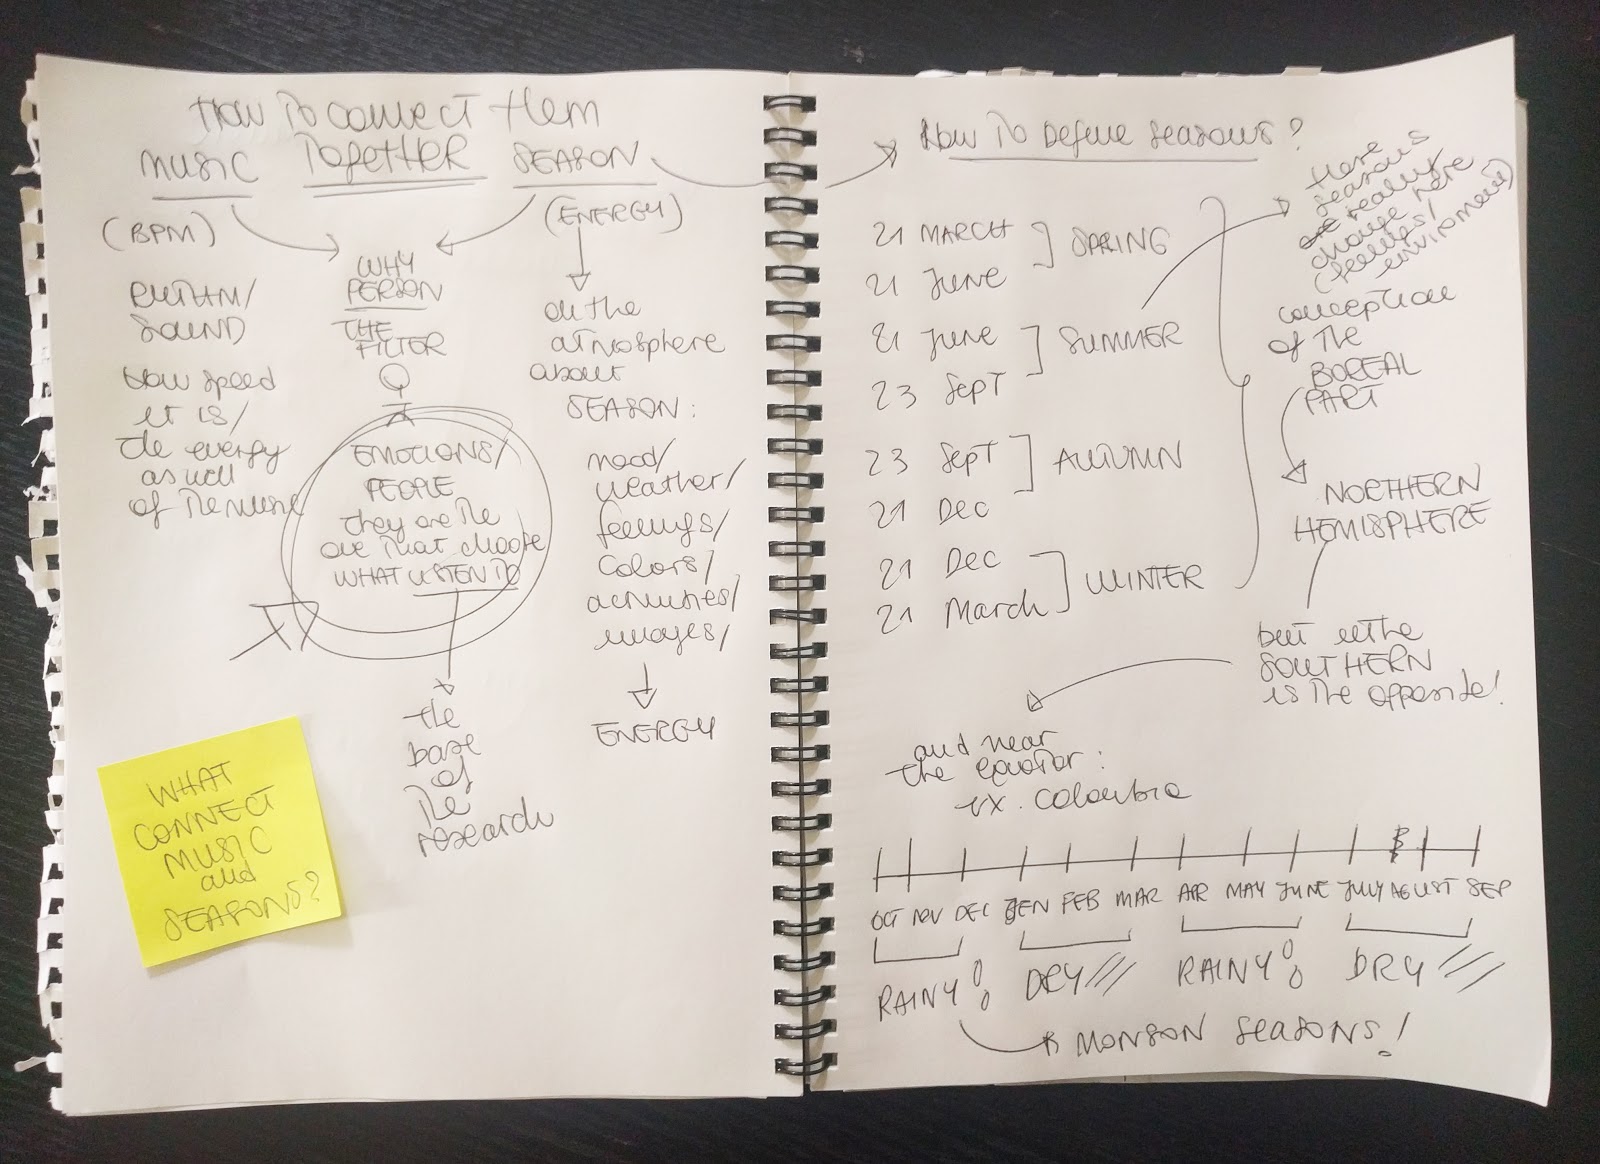 HOW TO CONNECT them
MUSIC TOGETHER SEASON
(BPM)
RHYTHM/
SOUND
How speed
it is/
the energy
as well
of the music
WHY
PERSON
THE
FILTER
EMOTIONS/
PEOPLE
they are the
one that choose
WHAT LISTEN TO
the
base
of
the
research
(ENERGY)
on the
atmosphere
about
SEASON:
mood/
weather/
feelings/
colors/
activities/
images/
ENERGY
WHAT
CONNECT
MUSIC
and
SEASONS?
How to define seasons?
21 MARCH
21 June
SPRING
21 June
23 Sept
SUMMER
23 Sept
21 Dec
AUTUMN
21 Dec
21 March
WINTER
these
seasons
really
change here
(feelings/
environment)
conception
of the
BOREAL
PART
NORTHERN
HEMISPHERE
but in the
SOUTHERN
is the opposite!
and near
the equator:
ex. Colombia
OCT NOV DEC GEN FEB MAR APR MAY JUNE JULY AGUST SEP
RAINY DRY RAINY DRY
MONSON SEASONS!